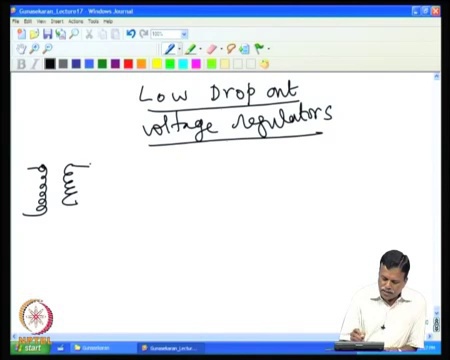 Gunasekaran_Lecture17 - Windows Journal
File Edit View Insert Actions Tools Help
100%
B I
Low Drop out
voltage regulators
NPTEL
start
Gunasekaran
Gunasekaran_Lectu...